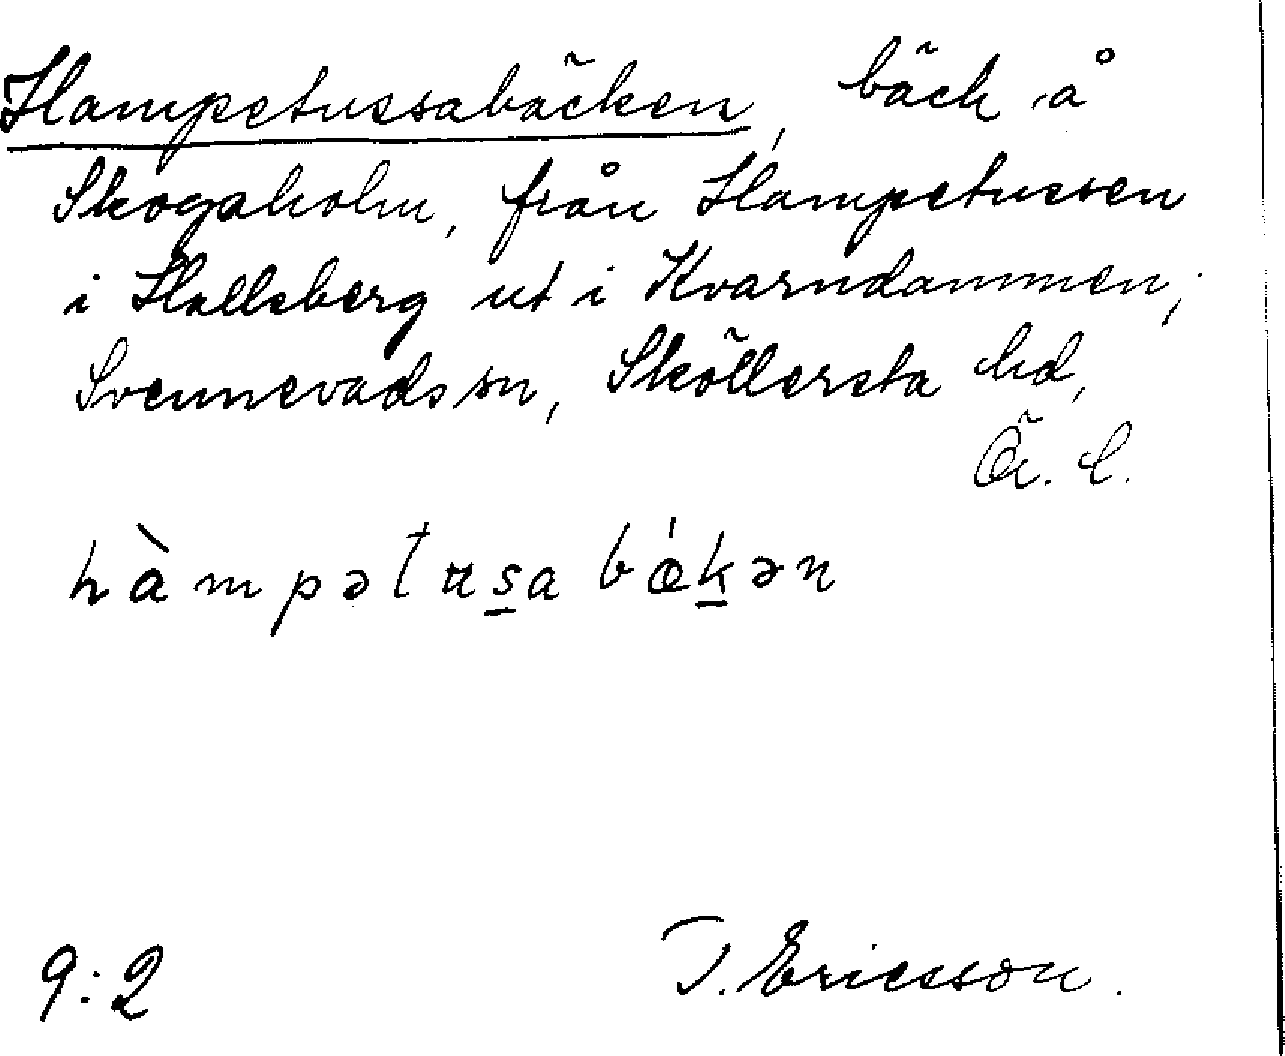 Hampetussabäcken, bäck å
Skogaholm, från Hampetussen
i Hallsberg ut i Kvarndammen;
Svennevads sn, Sköllersta hd,
Ör. l.
hàmpətuʂa bǽḵən
9:2
T. Ericsson.